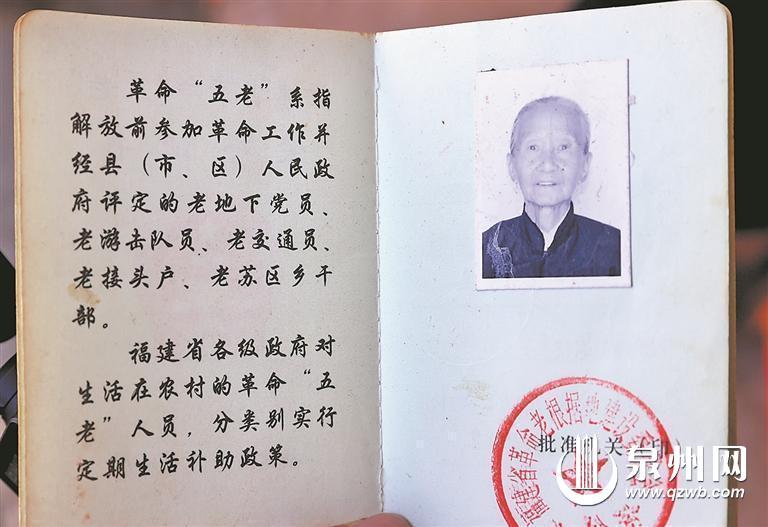 革命“五老”系指
解放前参加革命工作并
经县（市、区）人民政
府评定的老地下党员、
老游击队员、老交通员、
老接头户、老苏区乡干
部。
福建省各级政府对
生活在农村的革命“五
老”人员，分类别实行
定期生活补助政策。
福建省革命老根据地建设
批准机关（印）
泉州网
www.qzwb.com